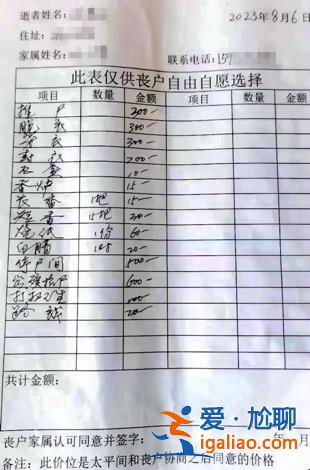 逝者姓名:
2023年8月6日
住址:
家属姓名:
联系电话:159
此表仅供丧户自由自愿选择
项目 数量 金额 项目 数量 金额
300-
脱衣 300-
穿衣 300-
寿衣 200-
10-
香炉 15-
长香 1把 15-
15把 300-
烧纸 1份 60-
白腊 1对 20-
停尸间 500-
600-
打扫卫生
20-
共计金额:
丧户家属认可同意并签字: 年 月
备注:此价位是太平间和丧户协商之后同意的价格
爱·尬聊
igaliao.com